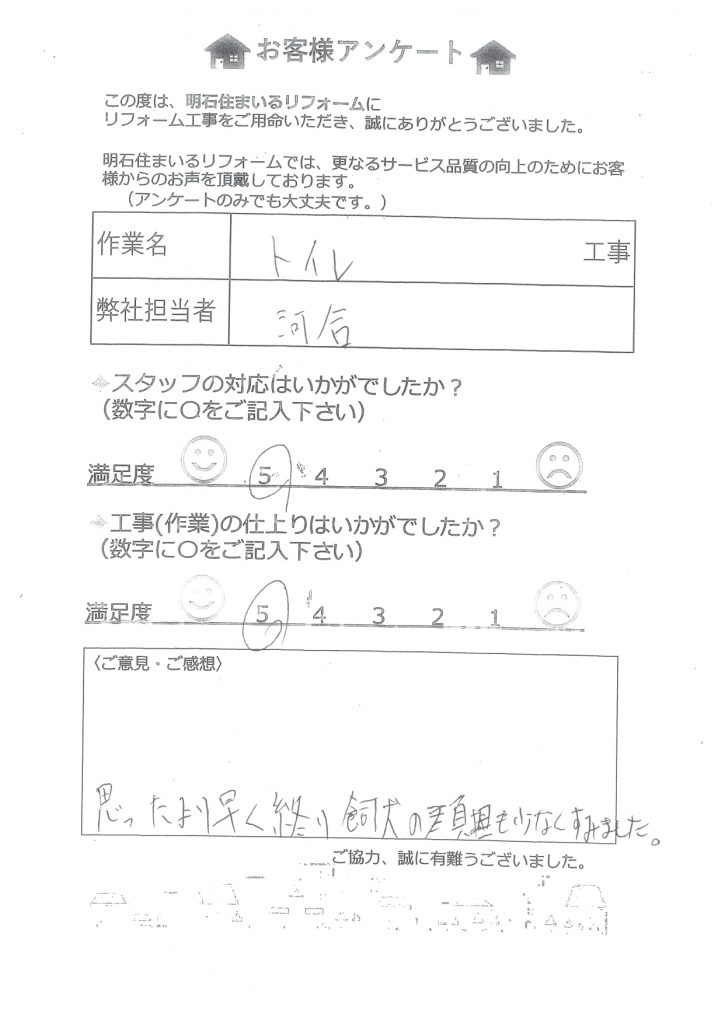 お客様アンケート
この度は、明石住まいるリフォームに
リフォーム工事をご用命いただき、誠にありがとうございました。
明石住まいるリフォームでは、更なるサービス品質の向上のためにお客
様からのお声を頂戴しております。
（アンケートのみでも大丈夫です。）
作業名 トイレ 工事
弊社担当者 河合
スタッフの対応はいかがでしたか？
（数字に〇をご記入下さい）
満足度 5 4 3 2 1
工事(作業)の仕上りはいかがでしたか？
（数字に〇をご記入下さい）
満足度 5 4 3 2 1
〈ご意見・ご感想〉
思ったより早く終り飼犬の も少なくすみました。
ご協力、誠に有難うございました。